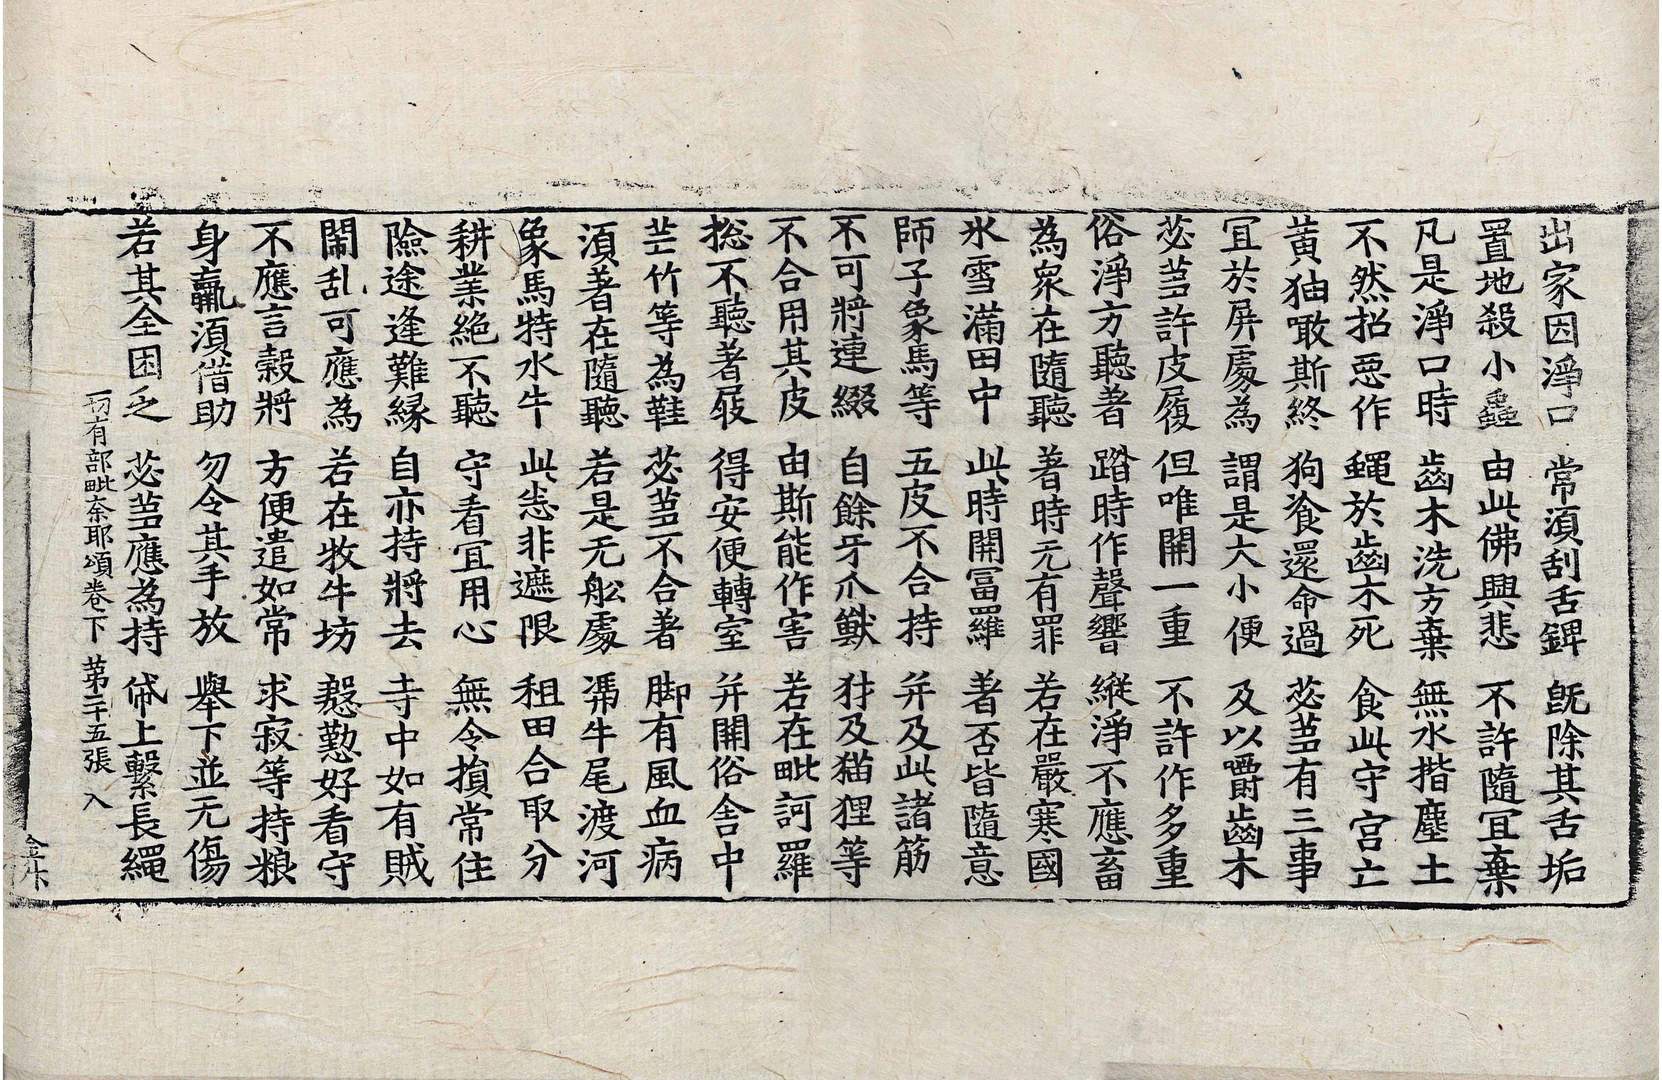 出家因淨口 常湏刮舌錍 旣除其舌垢
置地殺小蟲 由此佛興悲 不許隨冝棄
凡是淨口時 齒木洗方棄 無水揩塵土
不然招惡作 蠅於齒木死 食此守宮亡
黃㹨噉斯終 狗飡還命過 苾蒭有三事
冝於屏處為 謂是大小便 及以嚼齒木
苾蒭許皮履 但唯開一重 不許作多重
俗淨方聽著 踏時作聲響 縱淨不應畜
為衆在隨聽 著時无有罪 若在嚴寒國
氷雪滿田中 此時開冨羅 著否皆隨意
師子象馬等 五皮不合持 并及此諸筋
不可將連綴 自餘牙爪獸 犲及猫狸等
不合用其皮 由斯能作害 若在毗訶羅
揔不聽著屐 得安便轉室 并開俗舍中
芒竹等為鞋 苾蒭不合著 脚有風血病
湏著在隨聽 若是无舩處 馮牛尾渡河
象馬特水牛 此恙非遮限 租田合取分
耕業絶不聽 守看冝用心 無令損常住
險途逢難緣 自亦持將去 寺中如有賊
鬧乱可應為 若在牧牛坊 慇懃好看守
不應言穀將 方便遣如常 求寂等持粮
身羸湏借助 勿令其手放 舉下並无傷
若其全困乏 苾蒭應為持 帒上繫長繩
一切有部毗奈耶頌卷下 第二十五張 入